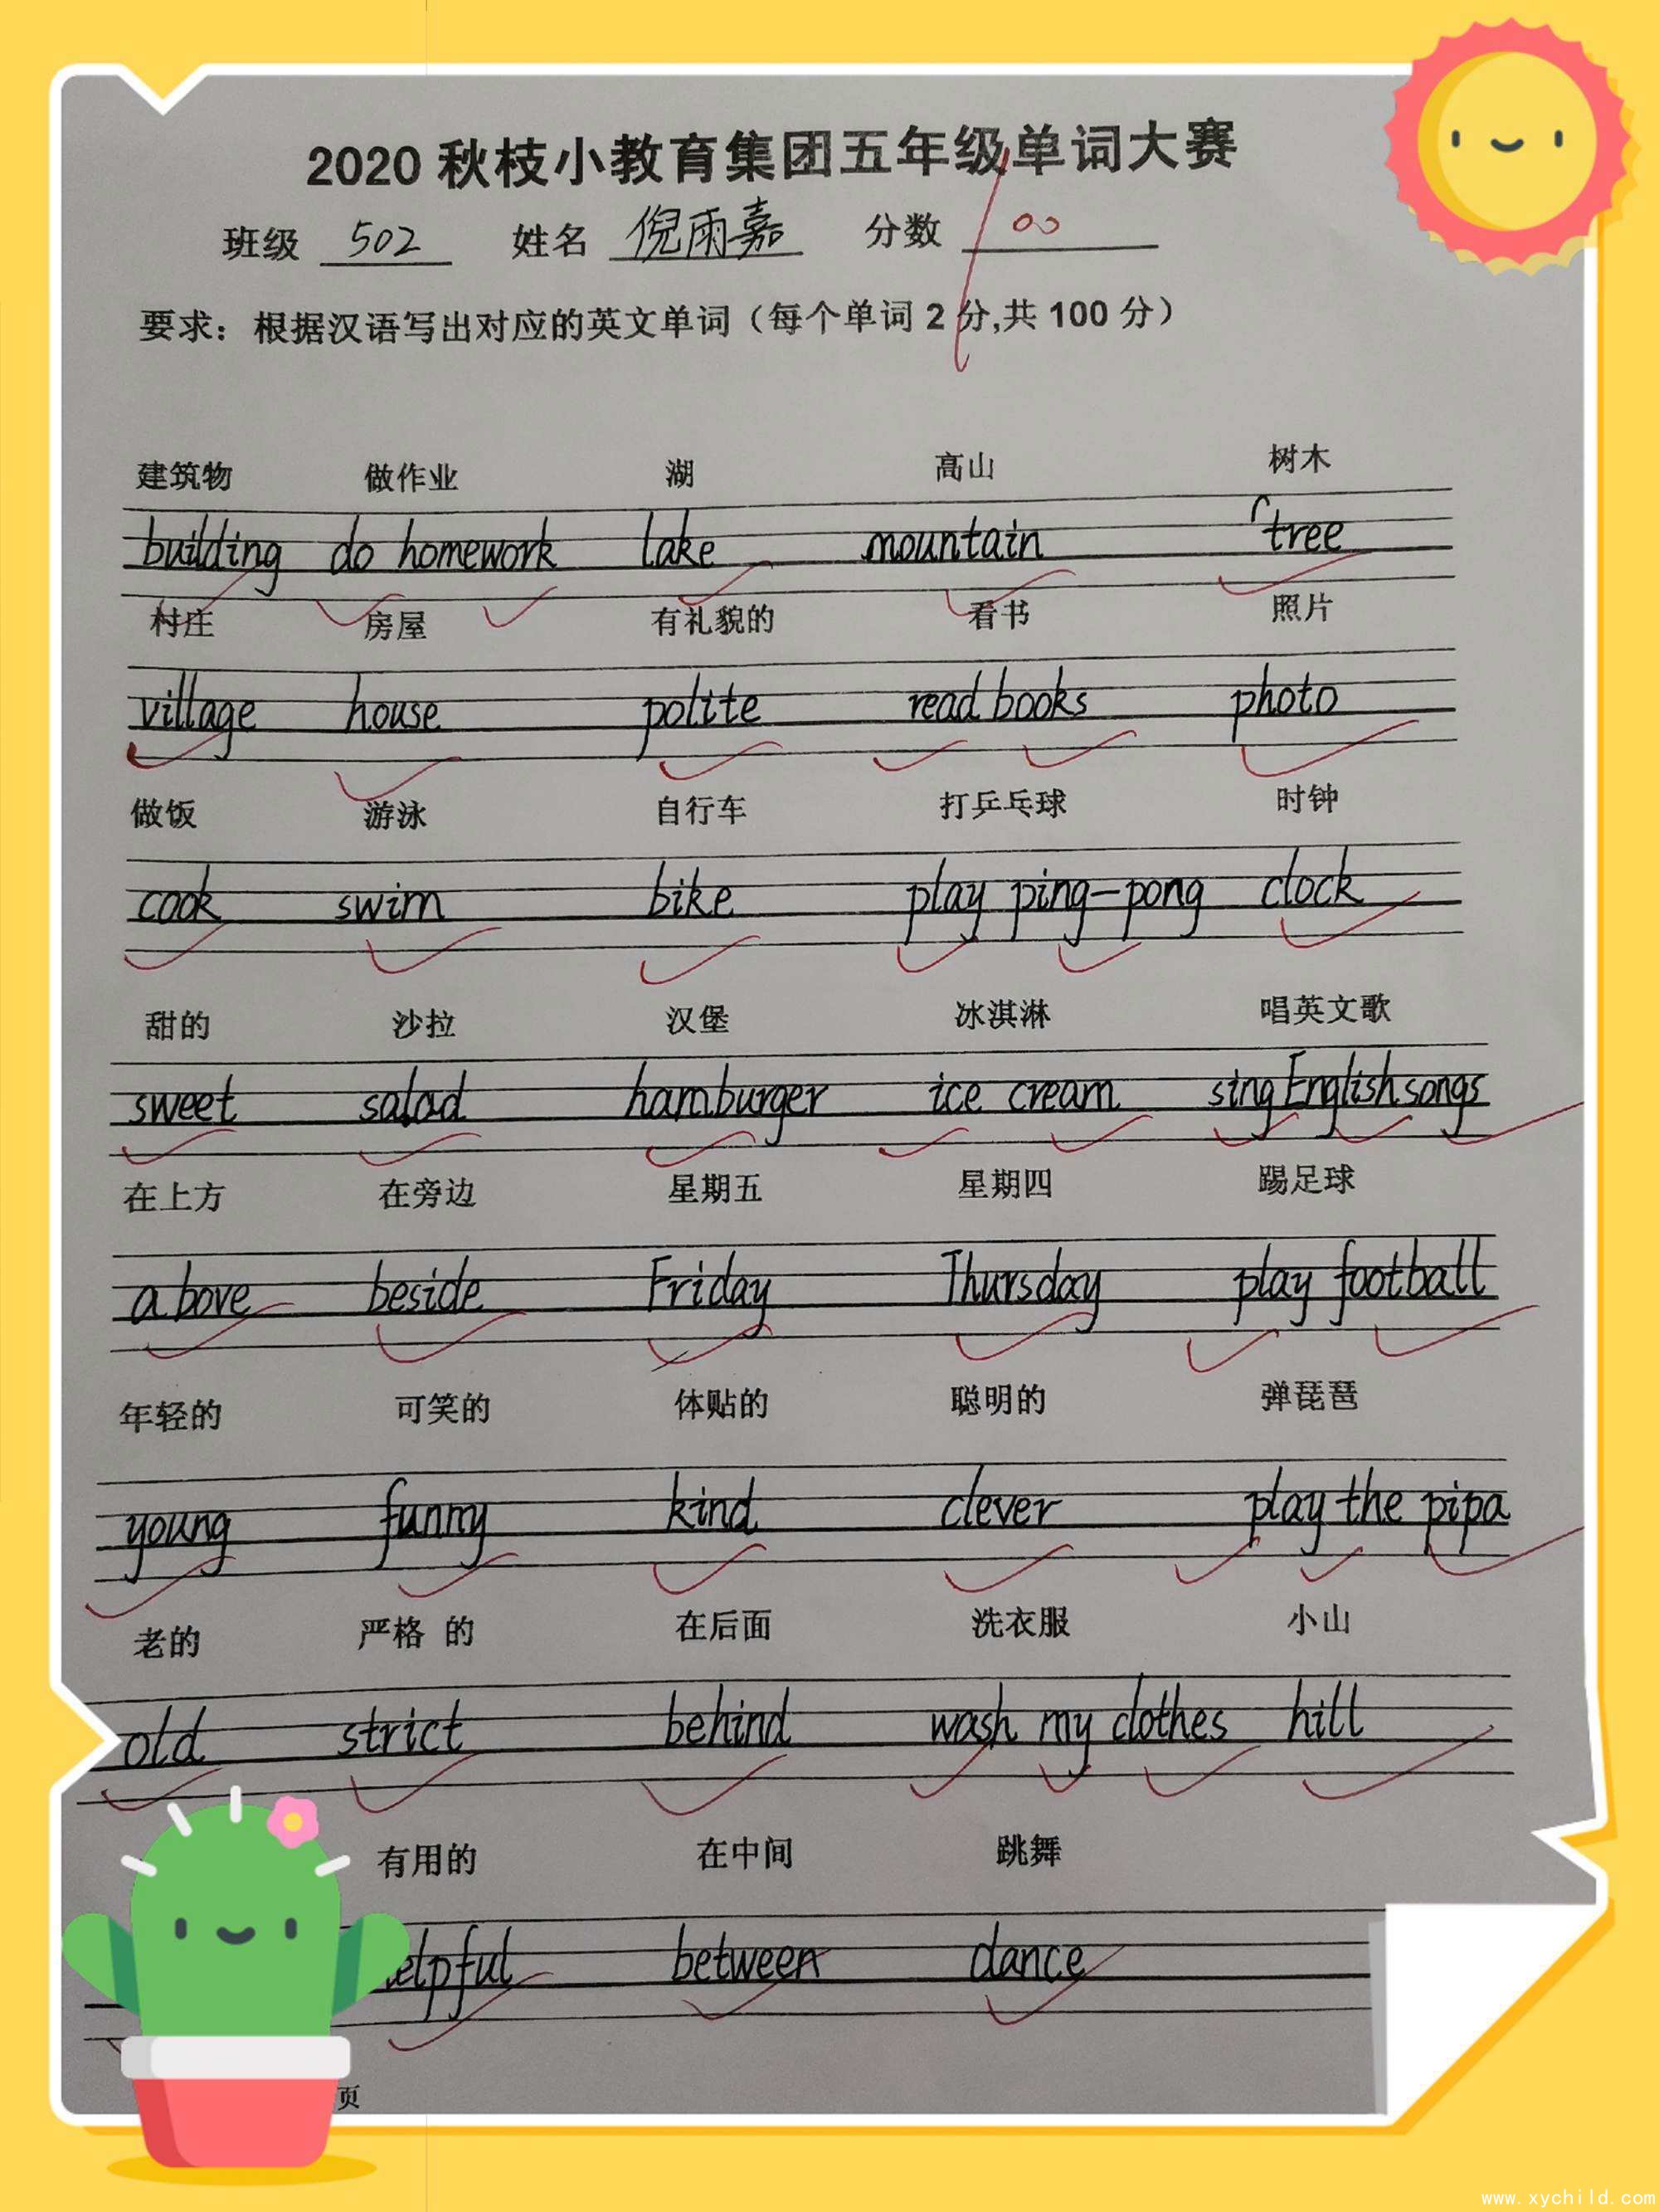 2020 秋枝小教育集团五年级单词大赛
班级 502 姓名 倪雨嘉 分数 100
要求：根据汉语写出对应的英文单词（每个单词 2 分,共 100 分）
建筑物 做作业 湖 高山 树木
building do homework lake mountain tree
村庄 房屋 有礼貌的 看书 照片
village house polite read books photo
做饭 游泳 自行车 打乒乓球 时钟
cook swim bike play ping-pong clock
甜的 沙拉 汉堡 冰淇淋 唱英文歌
sweet salad hamburger ice cream sing English songs
在上方 在旁边 星期五 星期四 踢足球
above beside Friday Thursday play football
年轻的 可笑的 体贴的 聪明的 弹琵琶
young funny kind clever play the pipa
老的 严格 的 在后面 洗衣服 小山
old strict behind wash my clothes hill
有用的 在中间 跳舞
elpful between dance
页
www.xychild.com